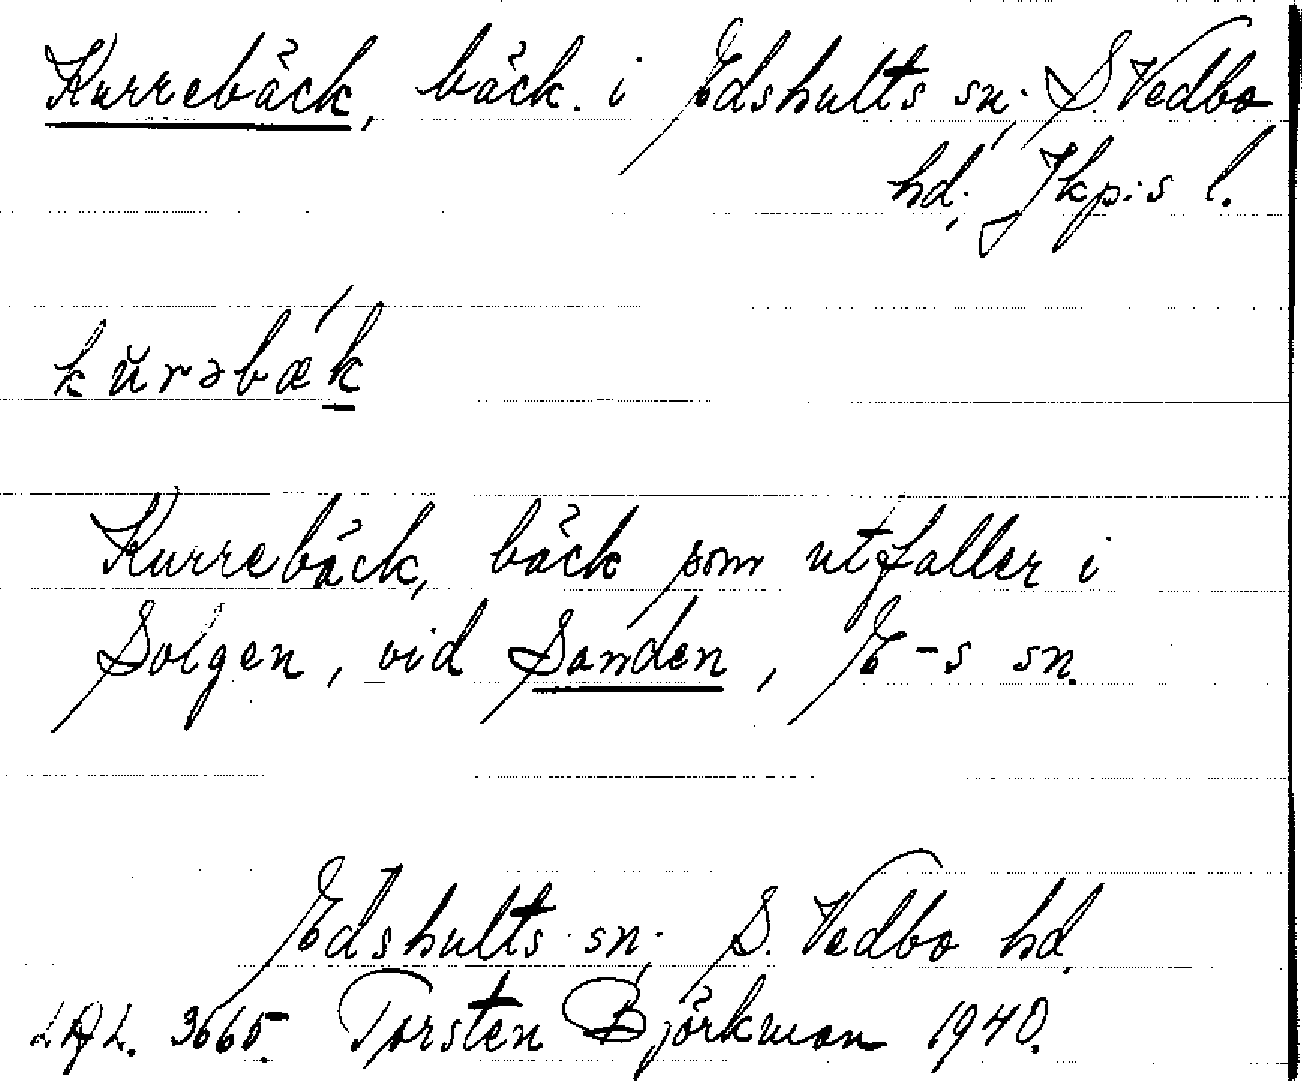 Kurrebäck, bäck. i Edshults sn; S. Vedbo
hd; Jkp:s l.
kŭrəbæ´k
Kurrebäck, bäck som utfaller i
Solgen, vid Sanden, E-s sn.
Edshults sn; S. Vedbo hd.
LAL. 3665. Torsten Björkman 1940.